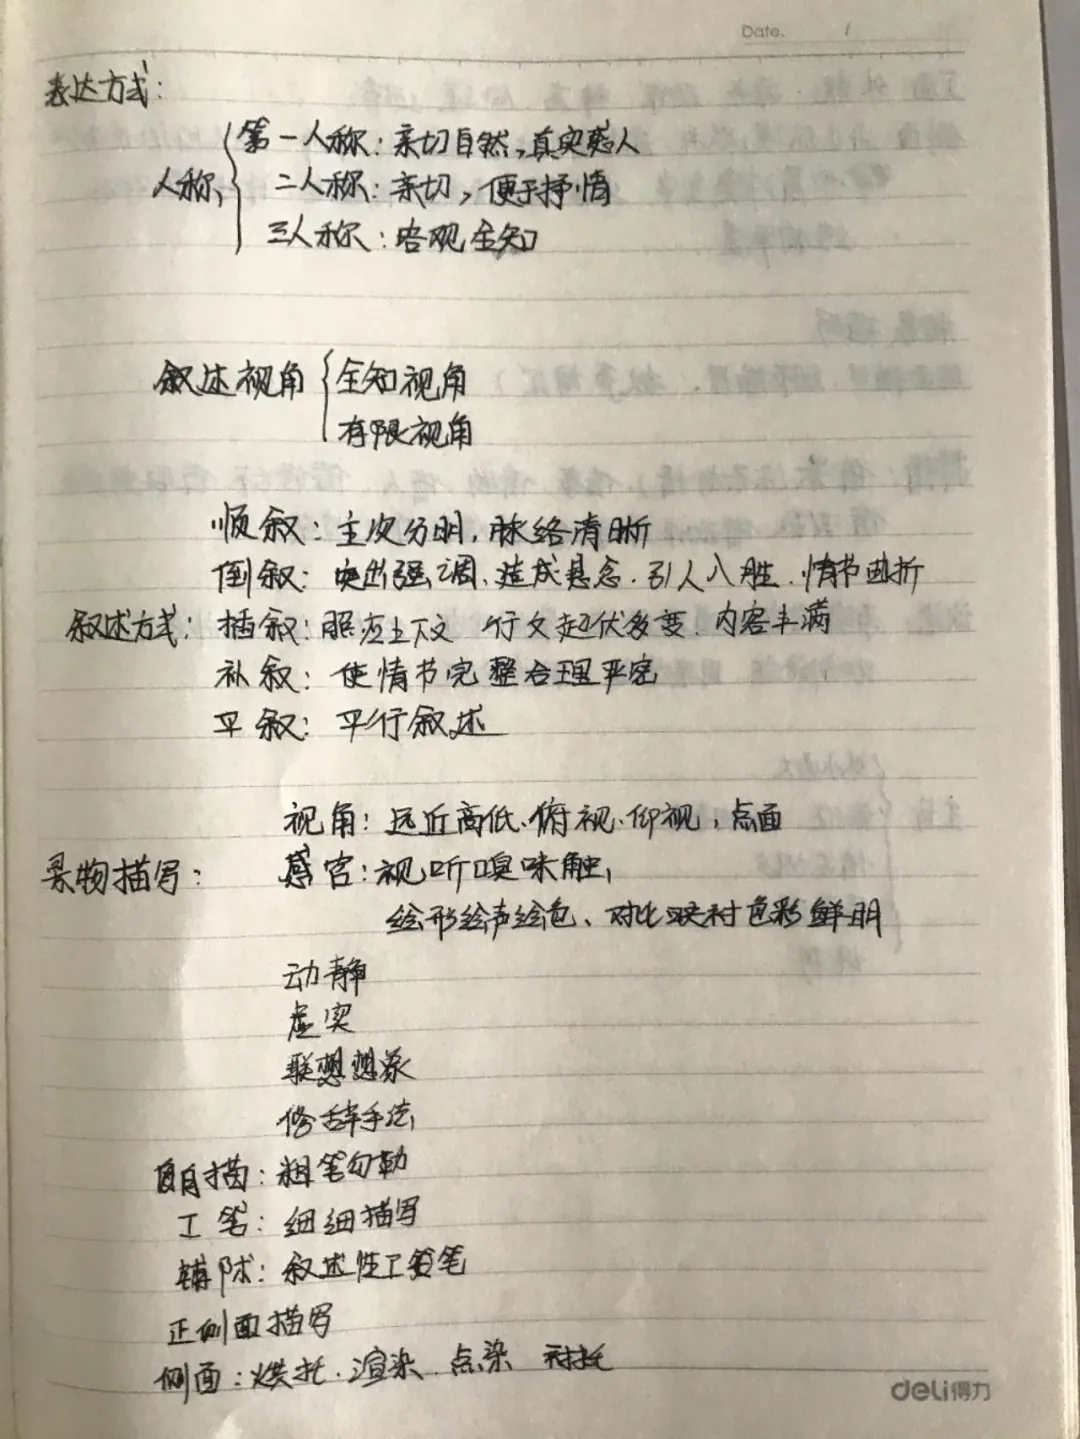 Date. /
表达方式:
第一人称: 亲切自然,真实感人
人称 二人称: 亲切, 便于抒情
三人称: 客观全知
叙述视角 全知视角
有限视角
顺叙: 主次分明, 脉络清晰
倒叙: 突出强调、造成悬念. 引人入胜. 情节曲折
叙述方式: 插叙: 照应上下文 行文起伏多变. 内容丰满
补叙: 使情节完整合理严密
平叙: 平行叙述
视角: 远近高低. 俯视. 仰视, 点面
景物描写: 感官: 视听嗅味触,
绘形绘声绘色、对比映衬色彩鲜明
动静
虚实
联想想象
修辞手法
白描: 粗笔勾勒
工笔: 细细描写
铺陈: 叙述性工笔
正侧面描写
侧面: 烘托. 渲染. 点染 衬托
deli得力